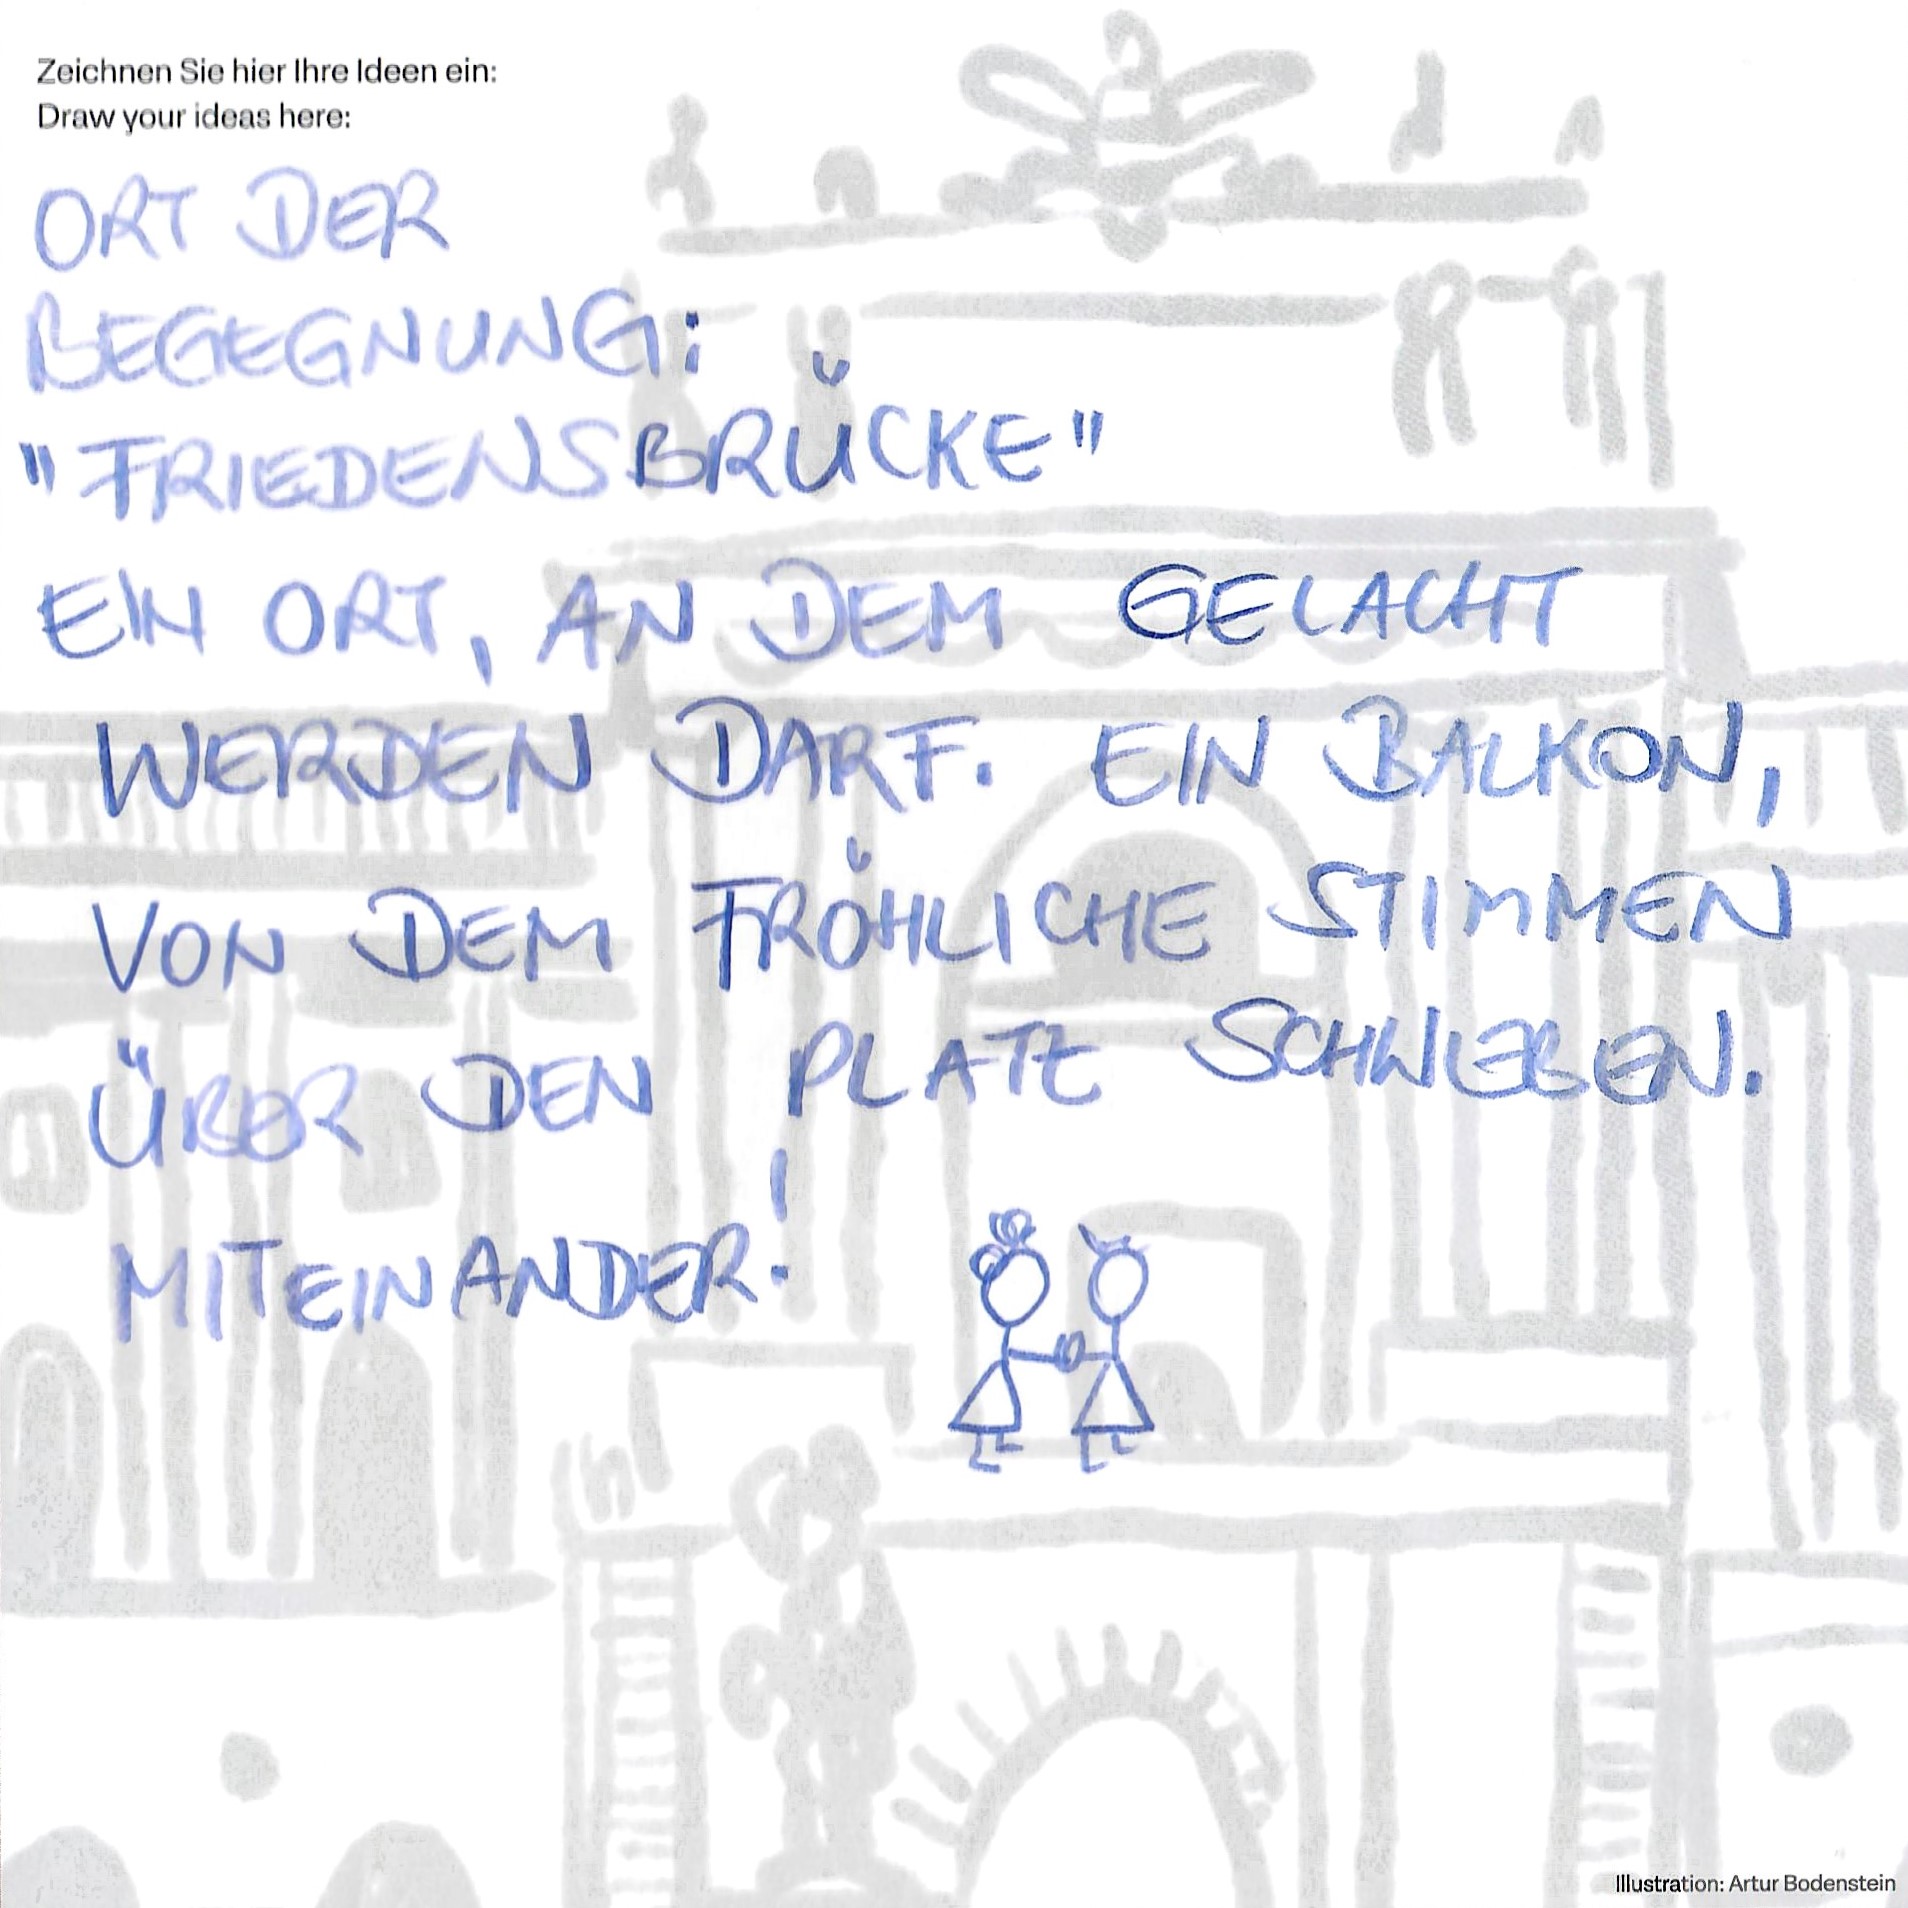 Zeichnen Sie hier Ihre Ideen ein:
Draw your ideas here:
ORT DER
BEGEGNUNG:
"FRIEDENSBRÜCKE"
EIN ORT, AN DEM GELACHT
WERDEN DARF. EIN BALKON,
VON DEM FRÖHLICHE STIMMEN
ÜBER DEN PLATZ SCHWEBEN.
MITEINANDER!
Illustration: Artur Bodenstein